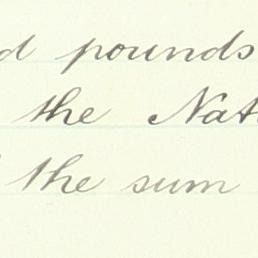 pounds
the
the sum